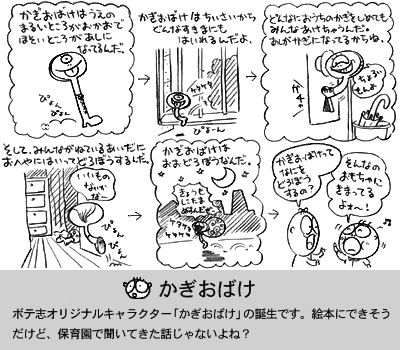 かぎおばけはうえの
まるいところがおかおで
ほそいところがあしに
なってるんだ。
ぴょん
ぴょん
かぎおばけはちいさいから
どんなすきまにも
はいれるんだよ。
ケタケタ
ぴょ〜ん
どんなにおうちのかぎをしめても
みんなあけちゃうんだ。
あしがかぎになってるからね。
ちょろい
もんよ
ガチャ
そして、みんながねているあいだに
おへやにはいってどろぼうするんだ。
いいもの
ないか
な〜
ぴょん
ぴょん
かぎおばけは
おおどろぼうなんだ。
ケタケタ
ケタケタ
かぎおばけって
なにを
どろぼう
するの?
そんなの
おもちゃに
きまってる
よぉ〜!
かぎおばけ
ポテ志オリジナルキャラクター「かぎおばけ」の誕生です。絵本にできそう
だけど、保育園で聞いてきた話じゃないよね?